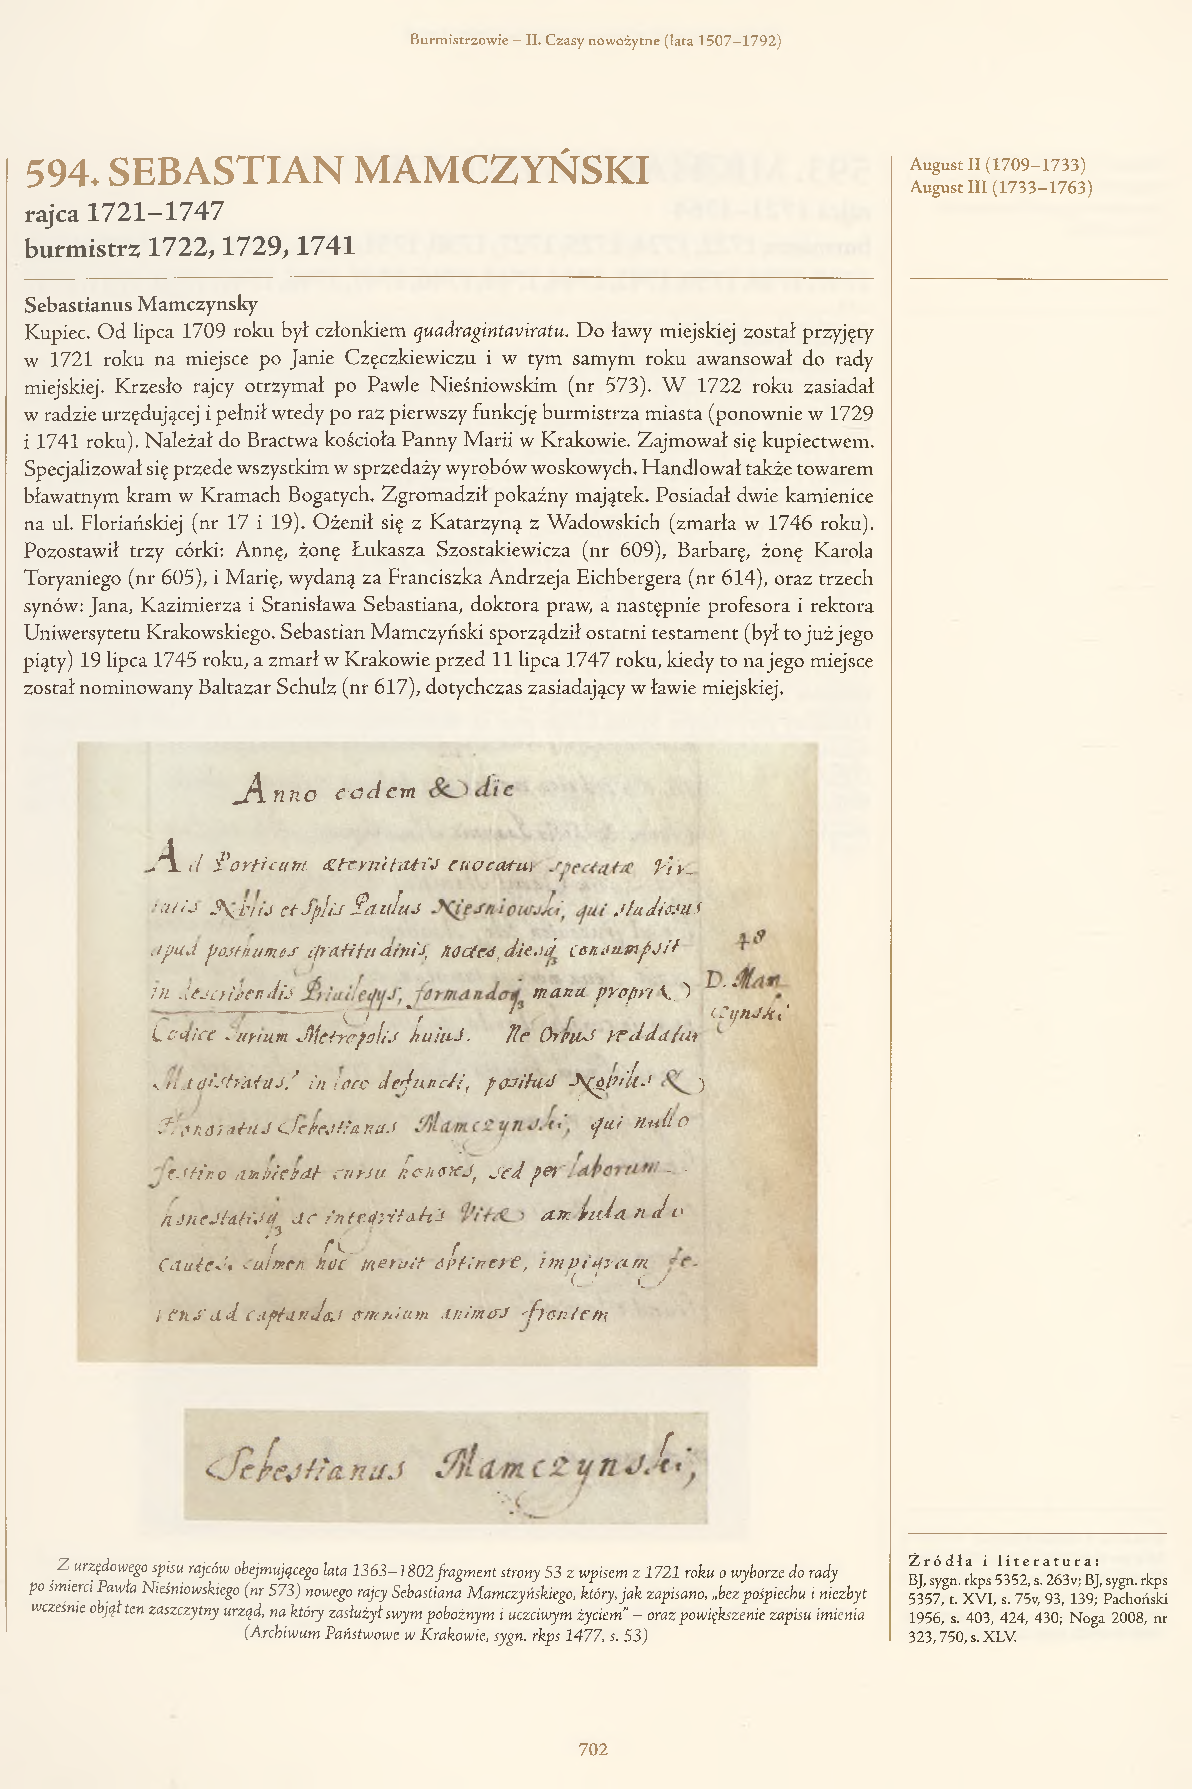 Burmistrzowie – II. Czasy nowożytne (lata 1507–1792)
594. SEBASTIAN MAMCZYŃSKI
rajca 1721–1747
burmistrz 1722, 1729, 1741
August II (1709–1733)
August III (1733–1763)
Sebastianus Mamczynsky
Kupiec. Od lipca 1709 roku był członkiem quadragintaviratu. Do ławy miejskiej został przyjęty
w 1721 roku na miejsce po Janie Częczkiewiczu i w tym samym roku awansował do rady
miejskiej. Krzesło rajcy otrzymał po Pawle Nieśniowskim (nr 573). W 1722 roku zasiadał
w radzie urzędującej i pełnił wtedy po raz pierwszy funkcję burmistrza miasta (ponownie w 1729
i 1741 roku). Należał do Bractwa kościoła Panny Marii w Krakowie. Zajmował się kupiectwem.
Specjalizował się przede wszystkim w sprzedaży wyrobów woskowych. Handlował także towarem
bławatnym kram w Kramach Bogatych. Zgromadził pokaźny majątek. Posiadał dwie kamienice
na ul. Floriańskiej (nr 17 i 19). Ożenił się z Katarzyną z Wadowskich (zmarła w 1746 roku).
Pozostawił trzy córki: Annę, żonę Łukasza Szostakiewicza (nr 609), Barbarę, żonę Karola
Toryaniego (nr 605), i Marię, wydaną za Franciszka Andrzeja Eichbergera (nr 614), oraz trzech
synów: Jana, Kazimierza i Stanisława Sebastiana, doktora praw, a następnie profesora i rektora
Uniwersytetu Krakowskiego. Sebastian Mamczyński sporządził ostatni testament (był to już jego
piąty) 19 lipca 1745 roku, a zmarł w Krakowie przed 11 lipca 1747 roku, kiedy to na jego miejsce
został nominowany Baltazar Schulz (nr 617), dotychczas zasiadający w ławie miejskiej.
Anno eodem & die
Ad Porticum æternitatis euocatur spectatæ Vir-
tutis Nobilis et Splis Paulus Niesniowski, qui studiosus
apud posthumos gratitudinis, noctes, diesq3 consumpsit
in describendis Priuilegijs, formandoq3 manu propria
Codice Iurium Metropolis huius. Ne Orbus reddatur
Magistratus, in loco defuncti, positus Nobilis &
Honoratus Sebestianus Mamczynski, qui nullo
festino ambiebat cursu honores, sed per laborum
honestatisq3 ac integritatis Vitæ ambulando
cautes, culmen hoc meruit obtinere, impigram fe-
rens ad captandos omnium animos frontem
48
D. Mam
czynski
Sebestianus Mamczynski,
Z urzędowego spisu rajców obejmującego lata 1363–1802 fragment strony 53 z wpisem z 1721 roku o wyborze do rady
po śmierci Pawła Nieśniowskiego (nr 573) nowego rajcy Sebastiana Mamczyńskiego, który, jak zapisano, „bez pośpiechu i niezbyt
wcześnie objął ten zaszczytny urząd, na który zasłużył swym pobożnym i uczciwym życiem" – oraz powiększenie zapisu imienia
(Archiwum Państwowe w Krakowie, sygn. rkps 1477, s. 53)
Źródła i literatura:
BJ, sygn. rkps 5352, s. 263v; BJ, sygn. rkps
5357, t. XVI, s. 75v, 93, 139; Pachoński
1956, s. 403, 424, 430; Noga 2008, nr
323, 750, s. XLV.
702